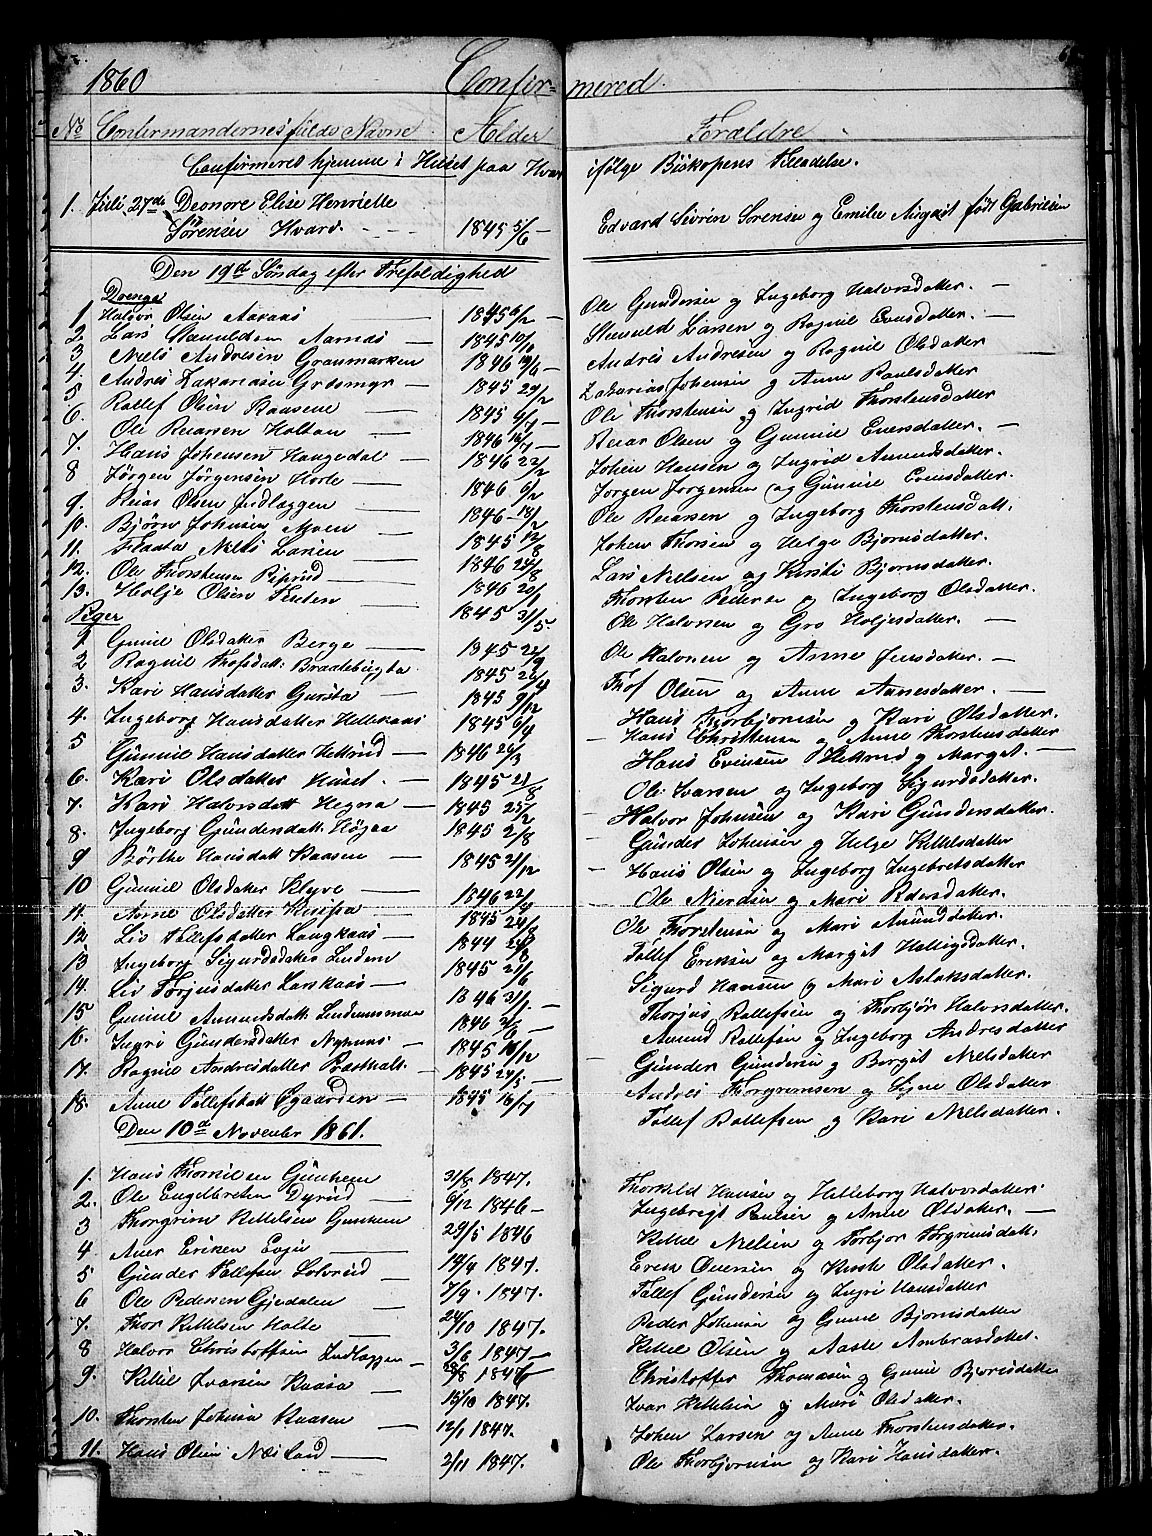 1860 Confirmered. 6
No Confirmandernes fulde Navne Alder Forældre
Confirmered hjemme i Huset paa Hvar ifølge Biskopens Tilladelse.
1. Juli 27de Deonore Elise Henriette
Sørensen Hvard. 1845 5/6 — Edvard Sivrin Sørensen og Emilie Migkit født Gabrilsen
Den 19de Søndag efter Trefoldighed
Drenge
1. Halvor Olsen Aaraas 1845 /2 — Ole Gundersen og Ingeborg Halvorsdatter. —
2. Lars Stenulds Aarnæs — 1845 Stenuld Larsen og Ragnil Evensdatter. —
3. Niels Andresen Granmarken 1846 19/6 — Andres Andresen og Ragnil Olsdatter
4. Andres Zakariasen Grosmyr — 1845 24/2 Zakarias Johensen og Anne Paulsdatter
5 Rollef Olsen Kaasene — 1845 4/7 — Ole Thorstensen og Ingrid Thorstensdatter
6. Ole Ruarsen Holtan — 1846 16/1 — Ruar Olsen og Gunnil Eversdatter. —
7. Hans Johensen Haugedal — 1846 22/2 Johen Hansen og Ingrid Amundsdatter.
8 Jørgen Jørgensen Horte — 1846 6/2 Jørgen Jørgensen og Gunnil Evensdatter.
9. Ruar Olsen Indlæggen — 1846 — 18/2 Ole Ruarsen og Ingeborg Thorstensdatt.
10. Bjørn Johnsen Moen — 1845 12/8 Johen Thorsen og Helge Bjørnsdatter.
11. Flaata Niels Larsen — 1846 24/8 Lars Nielsen og Kirsti Bjørnsdatter.
12. Ole Thorstensen Riprud — 1846 20/1 Thorsten Pedersen og Ingeborg Olsdatter.
13. Holje Olsen Teiten — 1845 31/5. Ole Halvorsen og Gro Holjesdatter. —
Piger
1 Gunil Olsdatter Berge — 1845 22/9 Ole Halvorsen og Anne Jensdatter. —
2 Ragnil Thofsdatt: Braatebugta. 1845 26/4 Thof Olsen og Anne Annesdatter. —
3. Kari Hansdatter Gursta — 1845 9/12 Hans Thorbjornsen og Kari Olsdatter.
4. Ingeborg Hansdatter Hellekaas 1845 6/9 — Hans Christensen og Anne Thorstensdatter
5 Gunnil Hansdatter Heltrud — 1846 26/3 Hans Evensen Heltrud og Marget. —
6. Kari Olsdatter Huset. — 1845 21/8 Ole Ivarsen og Ingeborg Sigurdsdatter.
7. Kari Halvorsdatt Hegna — 1845 25/2 — Halvor Johnsen og Kari Gundersdatter.
8. Ingeborg Gundersdatt. Högaa 1845 2/8 Gunder Johensen og Helge Kittelsdatter
9 Börthe Hansdatt Kaasen — 1845 21/12 — Hans Olsen og Ingeborg Ingebretsdatter
10 Gunnil Olsdatter Klyve — 1846 22/9 Ole Nierdsen og Mari Pedersdatter.
11. Anne Olsdatter Knipa — 1845 24/8 Ole Thorstensen og Mari Amunddatter.
12. Liv Tollefsdatter Langkaas — 1844 Tollef Eriksen og Margit Hallvigsdatter.
13 Ingeborg Sigurdsdatter Lindem 1845 21/6 Sigurd Hansen og Mari Aslaksdatter.
14. Liv Torjusdatter Larskaas — 1846 31/1 — Thorjus Rollefsen og Thorbjör Halvorsdatter.
15 Gunnil Amundsdatt Lindemsmoen 1846 — Amund Rollefsen og Ingeborg Andresdatter
16. Ingri Gundersdatter Nyhuus — 1845 16/12 — Gunder Gundersen og Bergit Nielsdatter
17. Ragnil Andresdatter Præsthalt. 1845 24/5 — Andres Thorgrimsen og Signe Olsdatter
18. Anne Tollefsdatt Øgaarden — 1845 16/7 Tollef Rollefsen og Kari Nielsdatter.
Den 10de November 1861.
1. Hans Thorkil en Gunheim 31/8 1847. Thorkild Hansen og Helleborg Halvorsdatter.
2. Ole Engelbretsen Dyrud — 6/12 1846 — Ingebregt Ruesen og Anne Olsdatter. —
3 Thorgrim Kittelsen Gunheim 23/5 1846 Kittil Nielsen og Torbjor Torgrimsdatt.
4. Aner Eriksen Evju — 14/4 1847. Erik Ouersen og Kirsti Olsdatter.
5 Gunder Tollefsen Solverud — 7/9. 1847. Tollef Gundersen og Ingri Hansdatter
6 Ole Pedersen Gjerdalen — 24/10 1847. Peder Johnsen og Gunne Bjornsdatter
7. Thor Kittelsen Holte — 3/6 1847 — Kittil Olsen og Aaste Ambrosdatter.
8 Halvor Christoffersen Indlæggen — 28/8 1846 Christoffer Thomasen og Gunil Bjorisdatter
9. Kittil Ivarsen Kaasa — 15/10 1847. Ivar Kittelsen og Mari Olsdatter.
10. Thorsten Johnsen Kaasen — 12/1 1847. Johen Larsen og Anne Thorstensdatter.
11. Hans Olsen Næsland — 2/11 1847. Ole Thorbjornsen og Kari Hansdatter.